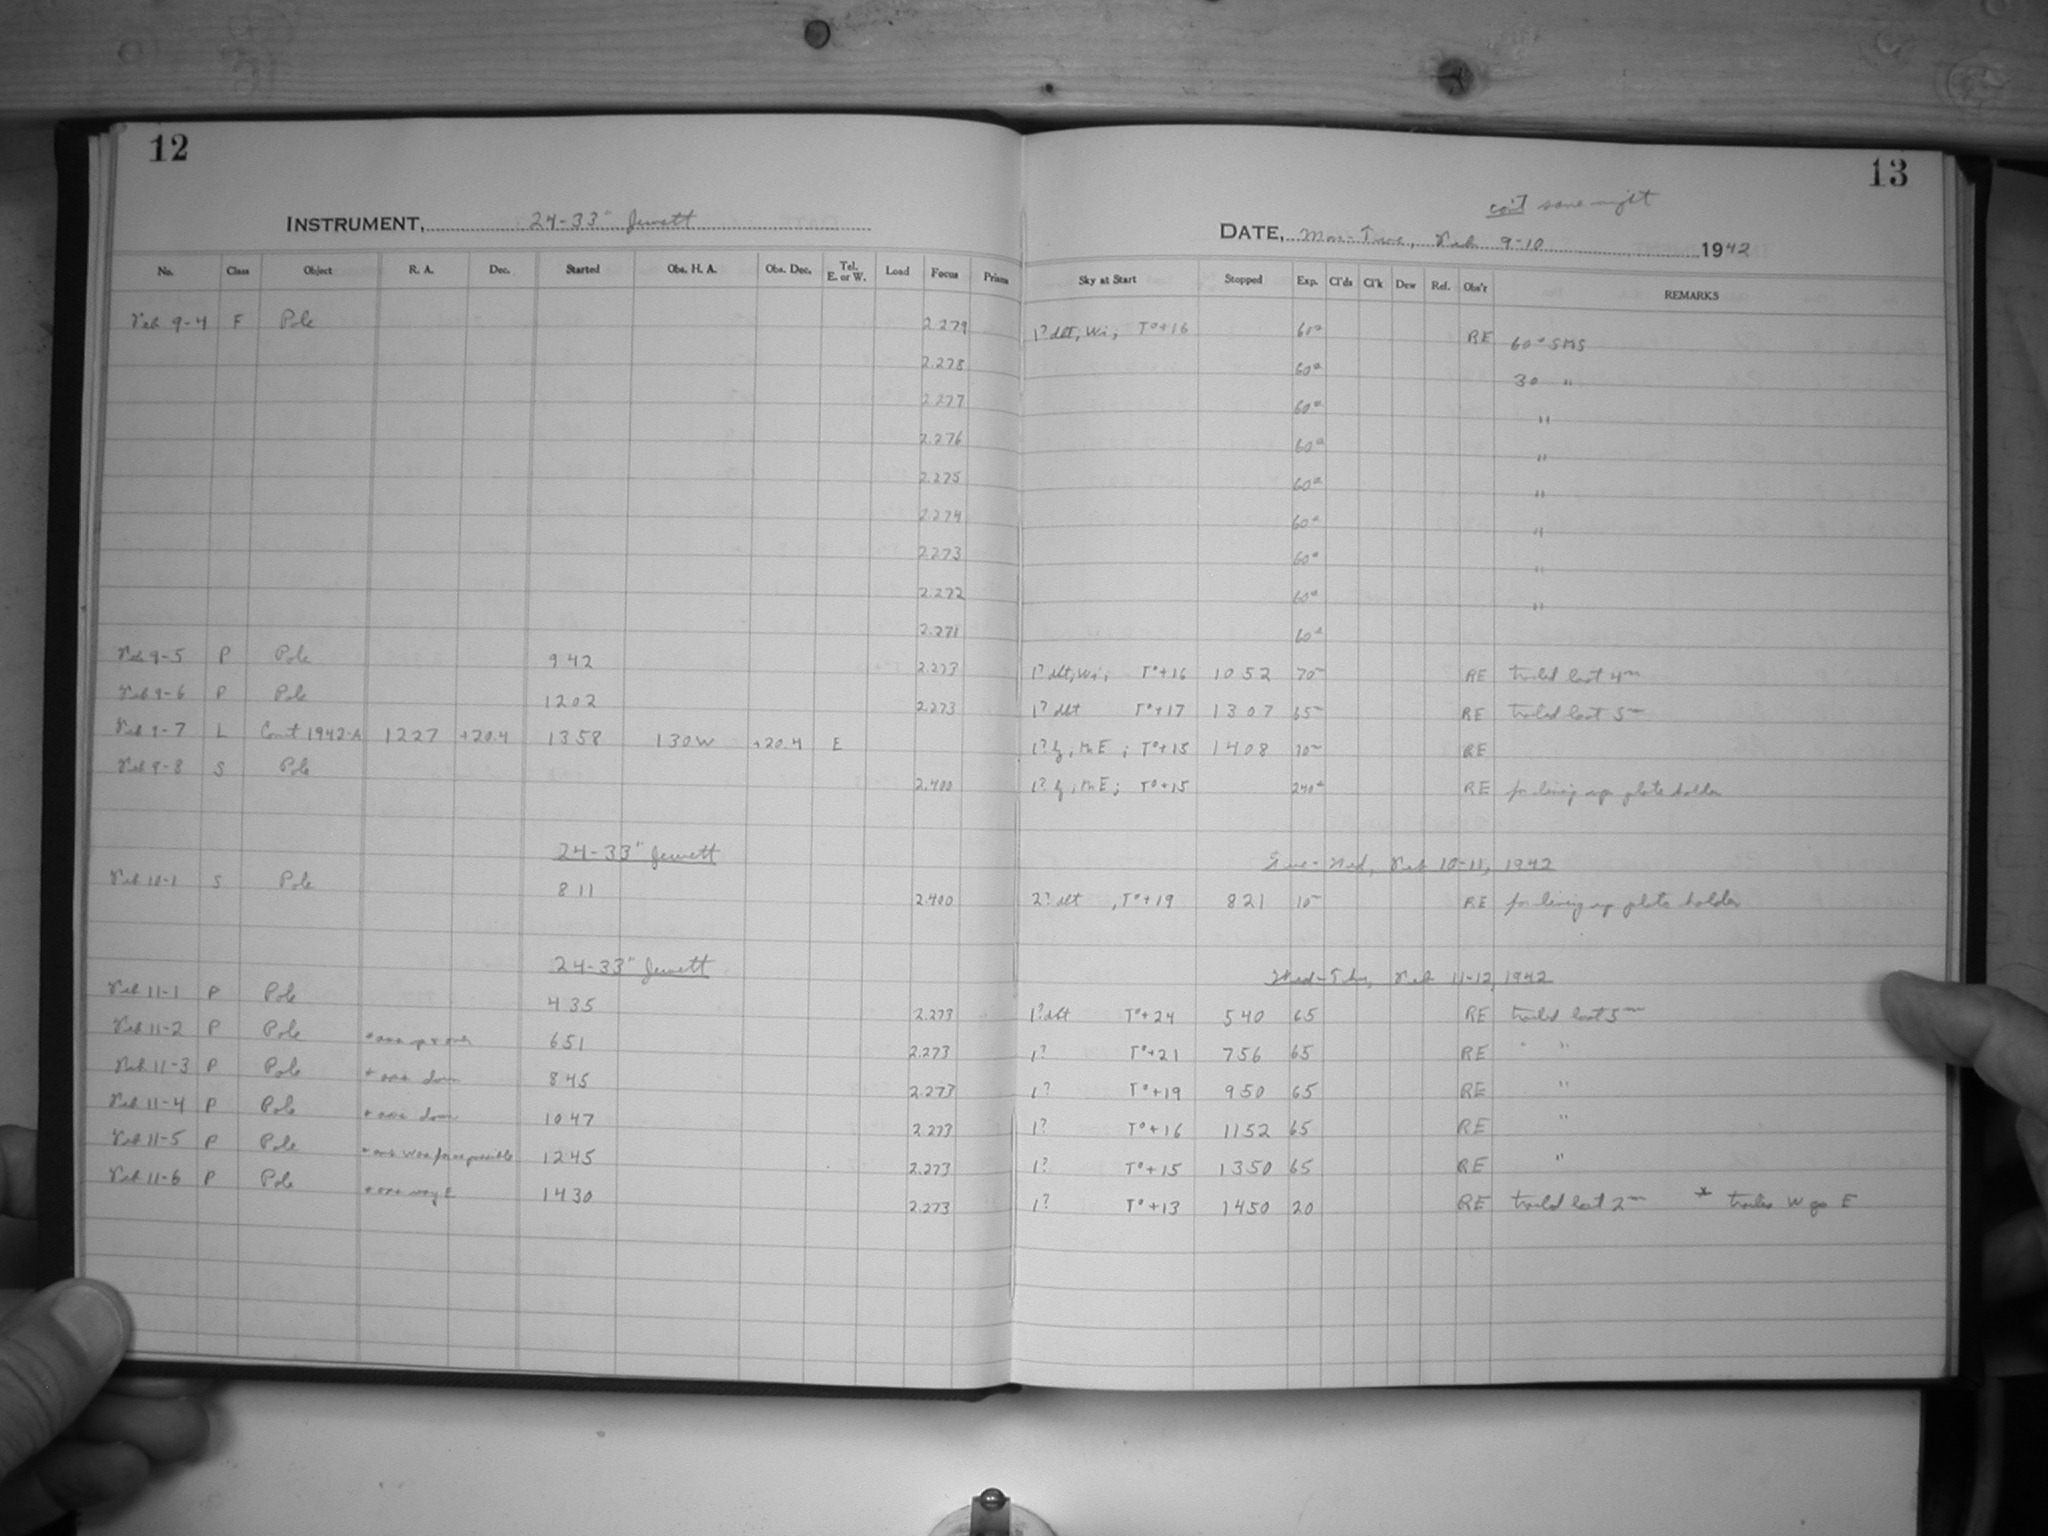 12
INSTRUMENT, 24-33" Jewett
No. Class Object R. A. Dec. Started Obs. H. A. Obs. Dec. Tel. E. or W. Load Focus Prism
Feb 9-4 F Pole 2.279
2.278
2.277
2.276
2.275
2.274
2.273
2.272
2.271
Feb 9-5 P Pole 942 2.273
Feb 9-6 P Pole 1202 2.273
Feb 9-7 L Comet 1942-A 1227 +20.4 1358 130W +20.4 E
Feb 9-8 S Pole 2.400
24-33" Jewett
Feb 10-1 S Pole 811 2.400
24-33" Jewett
Feb 11-1 P Pole 435 2.273
Feb 11-2 P Pole 651 2.273
Feb 11-3 P Pole 845 2.273
Feb 11-4 P Pole 1047 2.273
Feb 11-5 P Pole 1245 2.273
Feb 11-6 P Pole 1430 2.273
13
con't same night
DATE, Mon-Tues, Feb 9-10 1942
Sky at Start Stopped Exp. Cl'ds Cl'k Dew Ref. Obs'r REMARKS
1? dlt, Wi, T°+16 60s RE 60s SMS
60s 30 "
60s "
60s "
60s "
60s "
60s "
60s "
60s
1? dlt, Wi, T°+16 1052 70m RE trailed last 4m
1? dlt T°+17 1307 65m RE trailed last 5m
1? , mE ; T°+15 1408 10m RE
1? , mE ; T°+15 240s RE for lining up plate holder
Tue-Wed, Feb 10-11, 1942
2? dlt , T°+19 821 10m RE for lining up plate holder
Wed-Thu, Feb 11-12, 1942
1? dlt T°+24 540 65 RE trailed last 5m
1? T°+21 756 65 RE " "
1? T°+19 950 65 RE "
1? T°+16 1152 65 RE "
1? T°+15 1350 65 RE "
1? T°+13 1450 20 RE trailed last 2m * trailer W go E